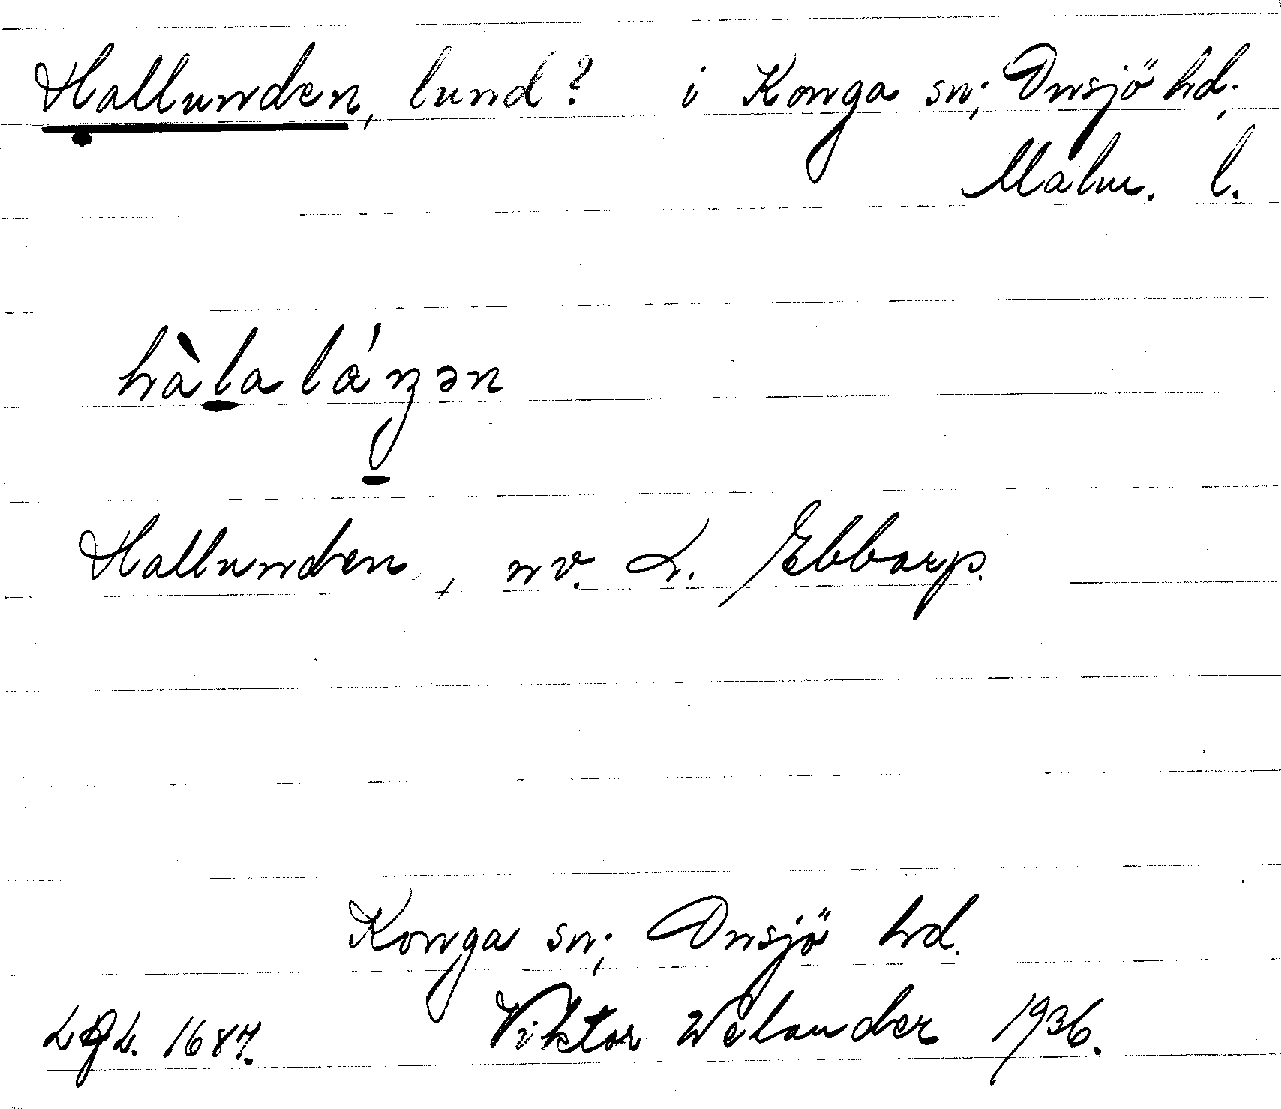 Hallunden, lund? i Konga sn; Onsjö hd.
Malm. l.
hàlalánən
Hallunden, nv. L. Ebbarp.
Konga sn; Onsjö hd.
1687. Viktor Welander 1936.